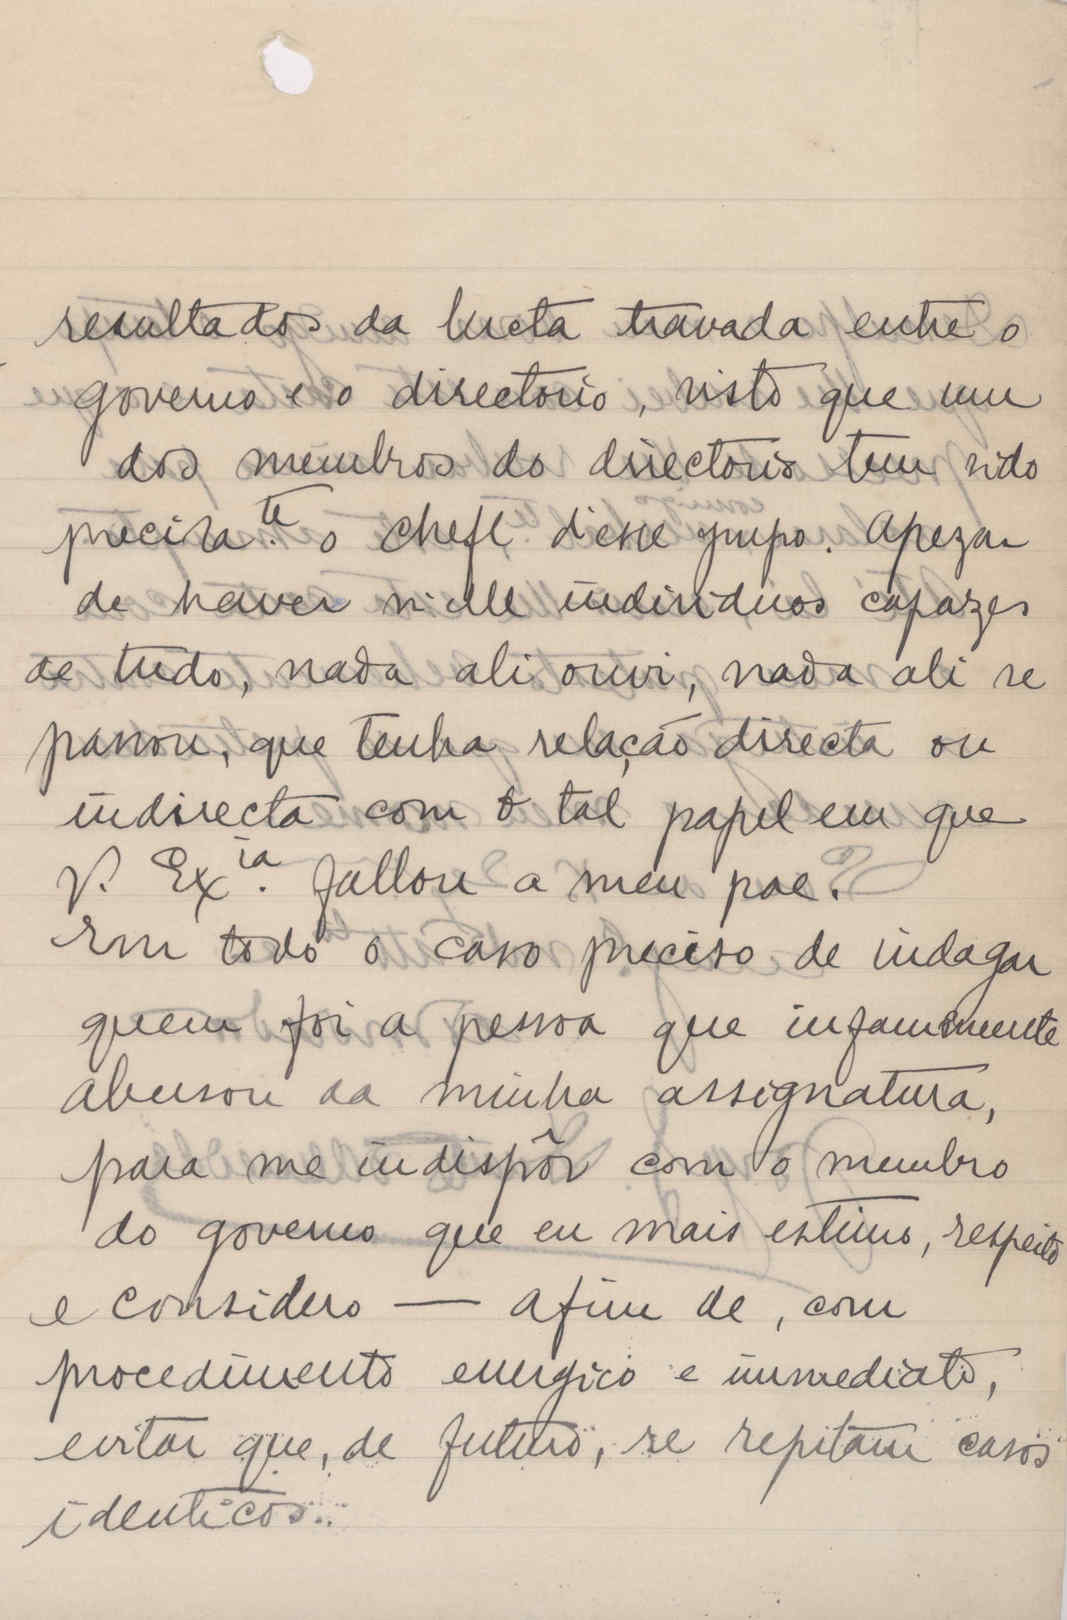 resultados da lucta travada entre o
governo e o directorio, visto que um
dos membros do directorio tem sido
precisa.te o chefe d'esse grupo. Apezar
de haver n'elle individuos capazes
de tudo, nada ali ouvi, nada ali se
passou, que tenha relação directa ou
indirecta com o tal papel em que
V. Ex.ia fallou a meu pae.
Em todo o caso preciso de indagar
quem foi a pessoa que infamemente
abusou da minha assignatura,
para me indispôr com o membro
do governo que eu mais estimo, respeito
e considero — afim de, com
procedimento energico e immediato,
evitar que, de futuro, se repitam casos
identicos.